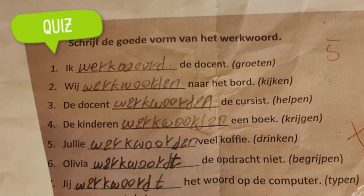 QUIZ
Schrijf de goede vorm van het werkwoord.
5
1. Ik werkwoord. de docent. (groeten)
2. Wij werkwoorden naar het bord. (kijken)
3. De docent werkwoorden de cursist. (helpen)
4. De kinderen werkwoorden een boek. (krijgen)
5. Jullie werkwoorden veel koffie. (drinken)
6. Olivia werkwoordt de opdracht niet. (begrijpen)
7. Jij werkwoordt het woord op de computer. (typen)